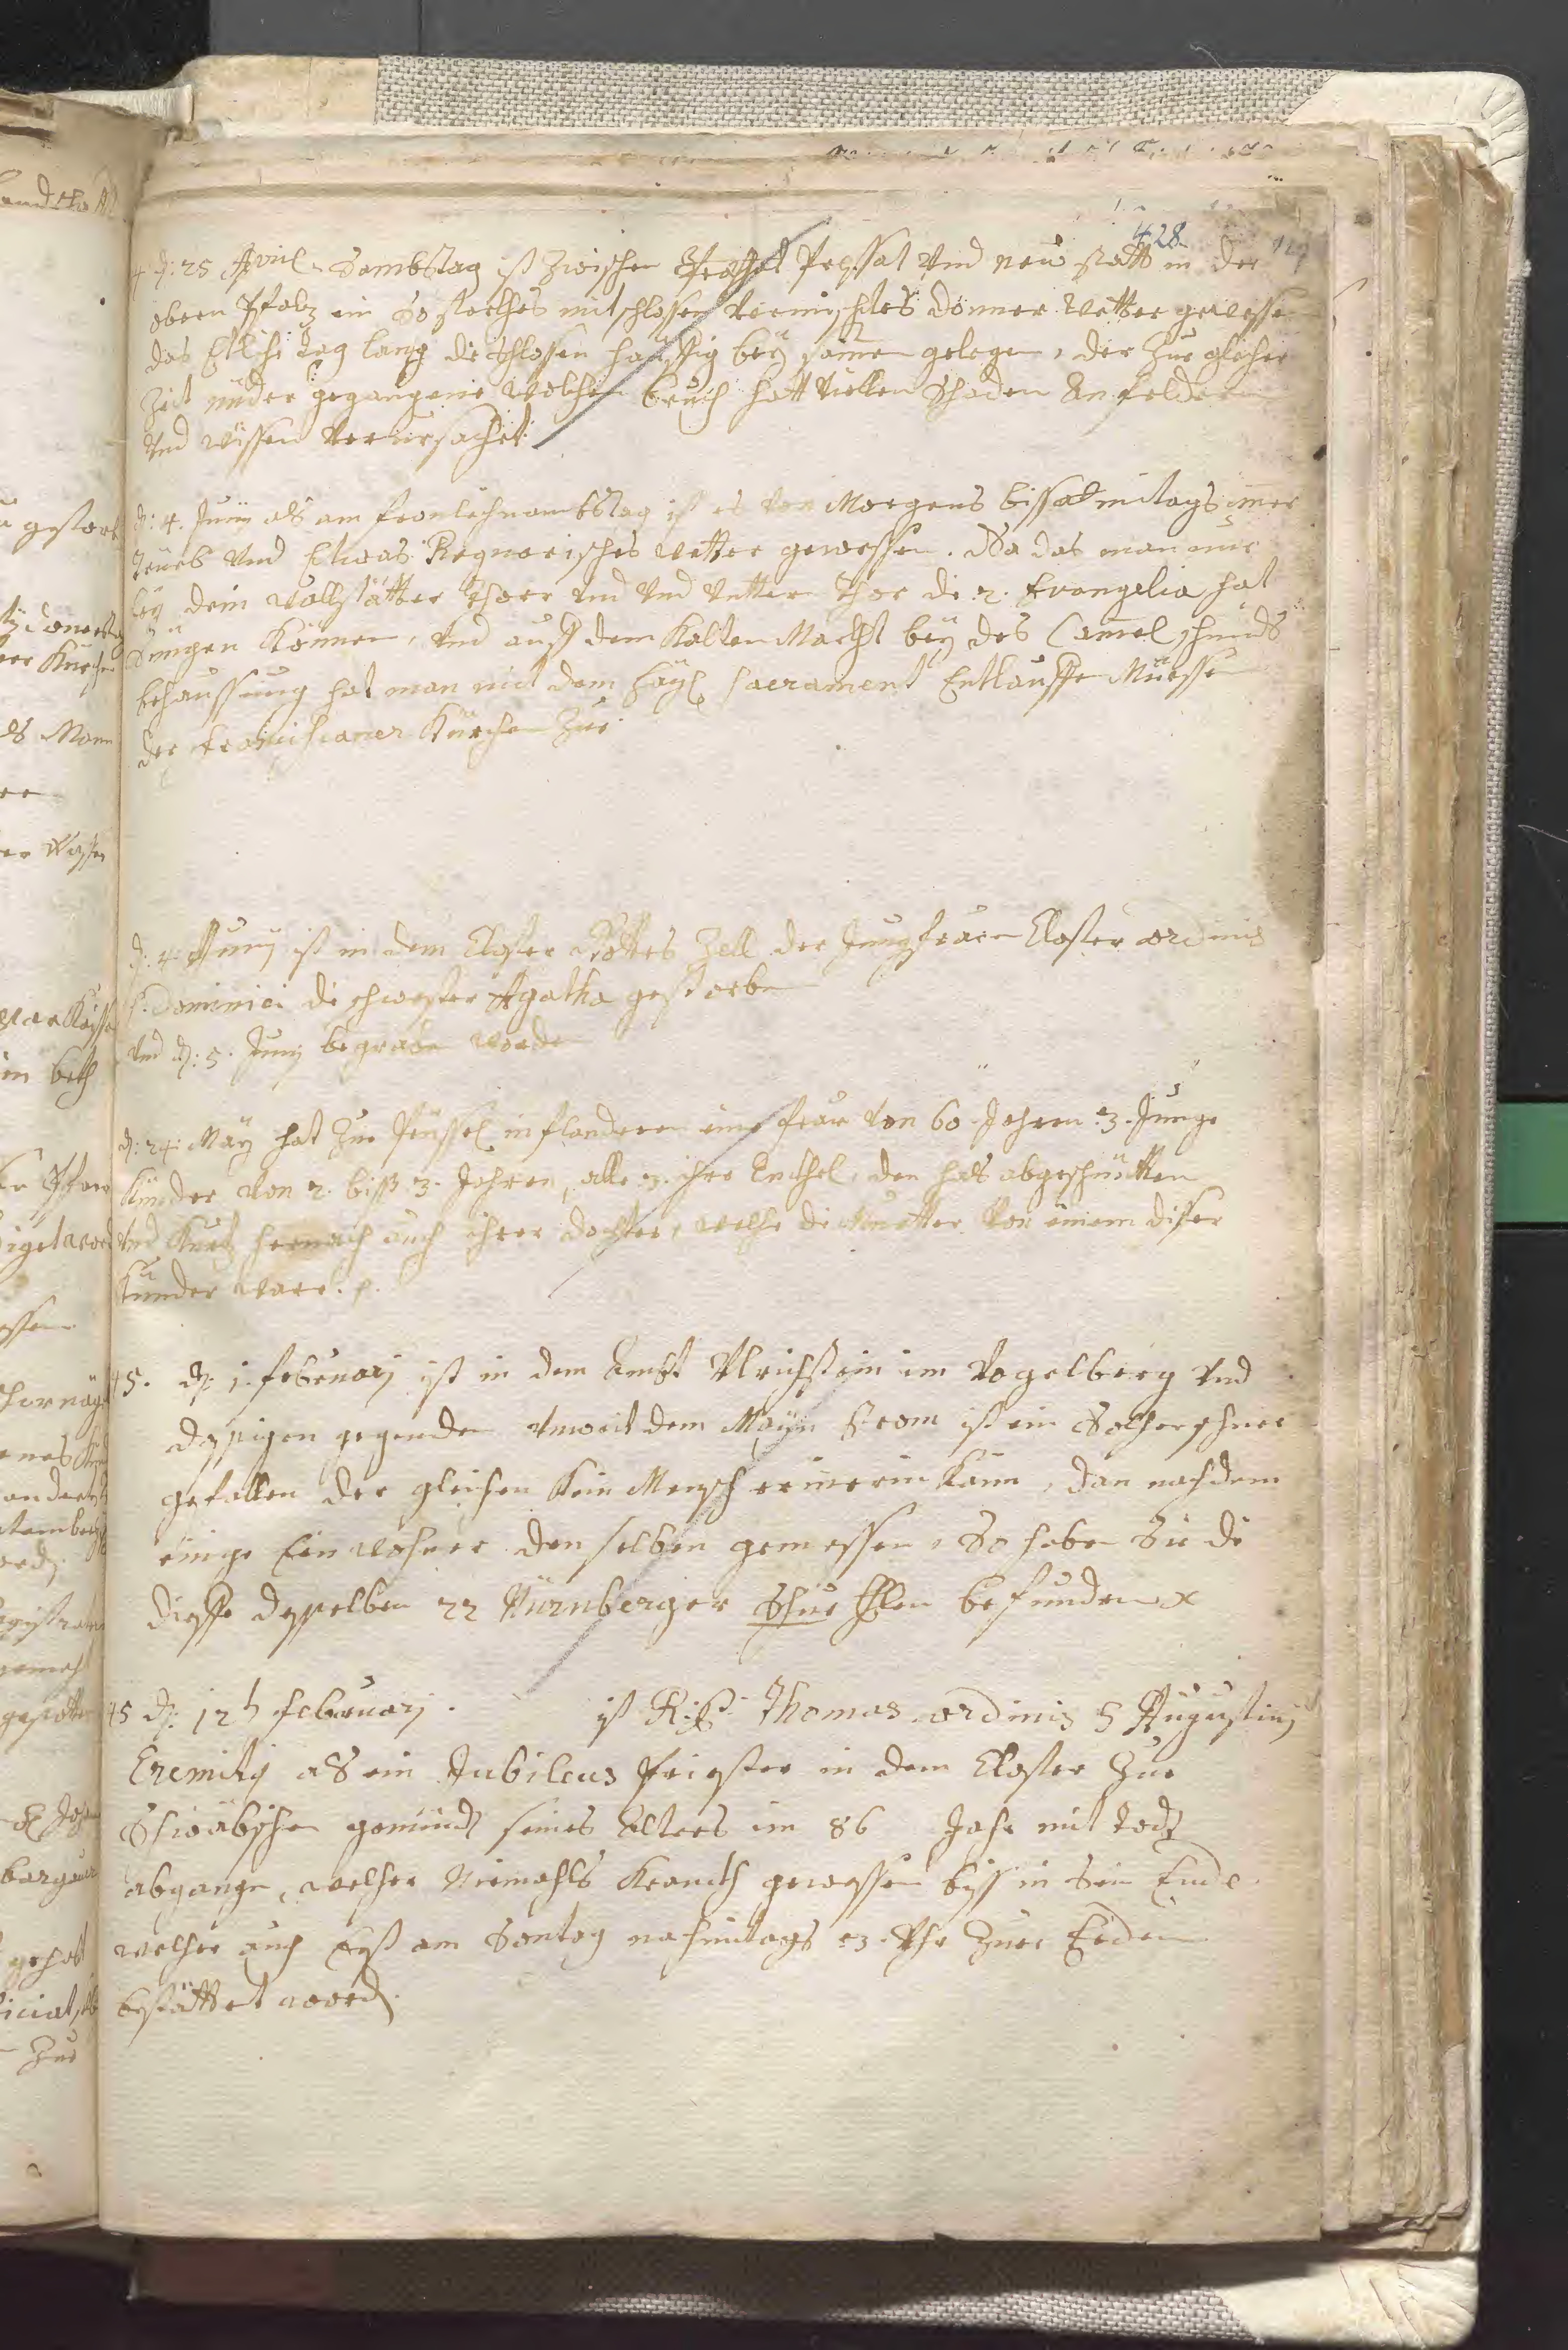 428
4 d: 25 April Sambstag ist zwischen Pressat Vnd neu statt in der
obern Pfaltz ein So starckhes mit schlossen Vermischtes donner wetter gewessen
das Etliche tag lang die schlossen hauffig bey samen gelegen, der zue gleicher
Zeit nider gegangene wolckhen bruch hatt Villen schaden An feldern
Vnd wissen Verursachet.
d: 4. Junij als am fronleichnambstag ist es Von Morgens biss mitags imer
trüeb Vnd Etwas Regnerisches wetter gewessen. So das man nur
bey dem Vallstätter thoer Vnd Vnd Vntern thor die 2. Evangelia hat
Singen Können, Vnd auff dem Kalten Marckht bey des Camelschmids
behaussung hat man mit dem heyl Sacrament Entlauffen Müessen
der franciscaner Kürchen zue
d: 4. Junij ist in dem Closter Gottes Zell der Jungfrauen Closter ordinis
S. Dominici die schwester Agatha gestorben
Vnd d: 5. Junij begraben worden
d: 24. May hat zue in flandern eine frau Von 60 Jahren 3. Junge
Künder Von 2. biss 3. Jahren, alle 3. ihre Enckhel, den hals abgeschnitten
Vnd Kurtz hernach auch ihrer dochter, welche die Muetter Von einem diser
Künder ware. p.
45. d: 1. februarj ist in dem Ambt Vlrichstein im Vogelberg Vnd
dassigen gegenden Vnweit dem Mayn Strom ist ein Solcher schnee
gefallen der gleichen Kein Mensch erinerin Kann, dan nach dem
einige Einwohner denselben gemessen, So haben Sie die
dieffe desselben 22 Nürnberger Elen befunden x
45 d: 12t februarj. ist R: P: Thomas ordinis S Augustinj
Eremitj als ein Jubileus Priester in dem Closter zue
Schwäbischen gemündt seines Alters im 86 Jahr mit todt
abgangen, welcher Niemahls Kranckh gewessen biss in Sein Ende.
welcher auch am Sontag nachmitags 3. Vhr zuer Erden
bestättet word.